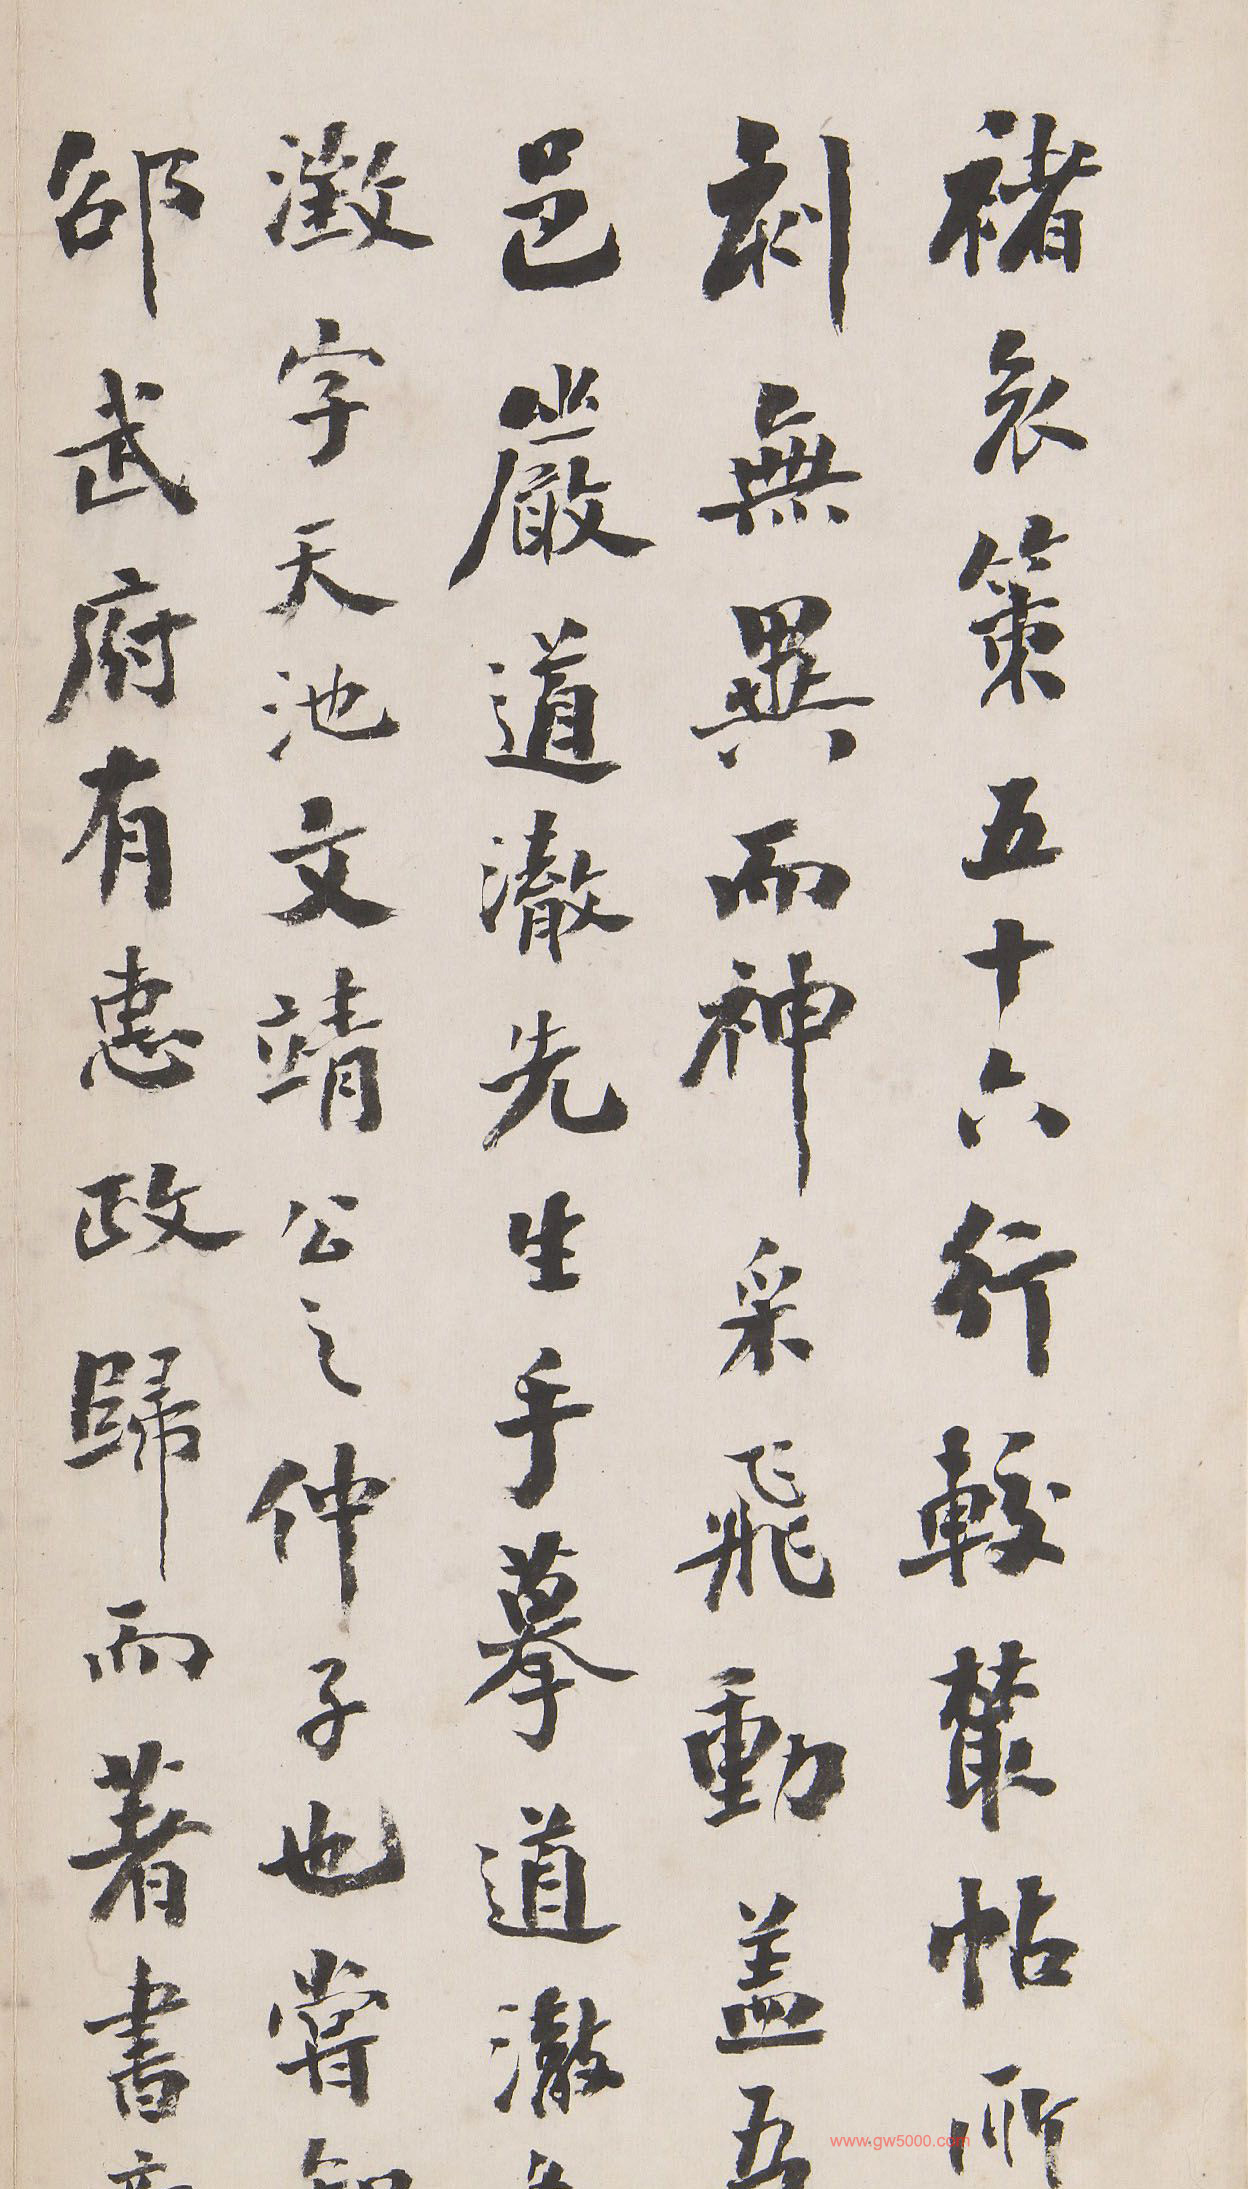 褚哀策五十六行較叢帖所
刻無異而神采飛動蓋吾
邑嚴道澈先生手摹道澈名
澂字天池文靖公之仲子也嘗知
邵武府有惠政歸而著書
www.gw5000.com